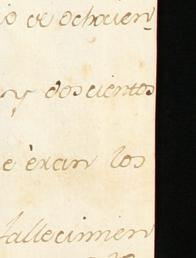 io de ochocien
n y doscientos
e èran los
fallecimien